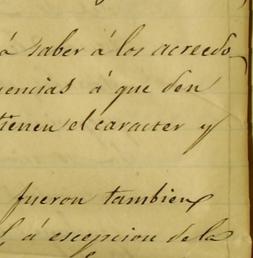 á saber á los acreedo
uencias á que den
tienen el caracter y
fueron tambien
á escepcion de la